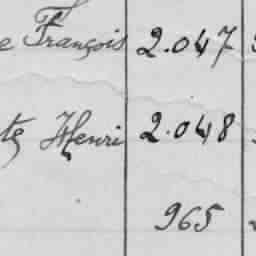 e François 2.047
te Henri 2.048
965